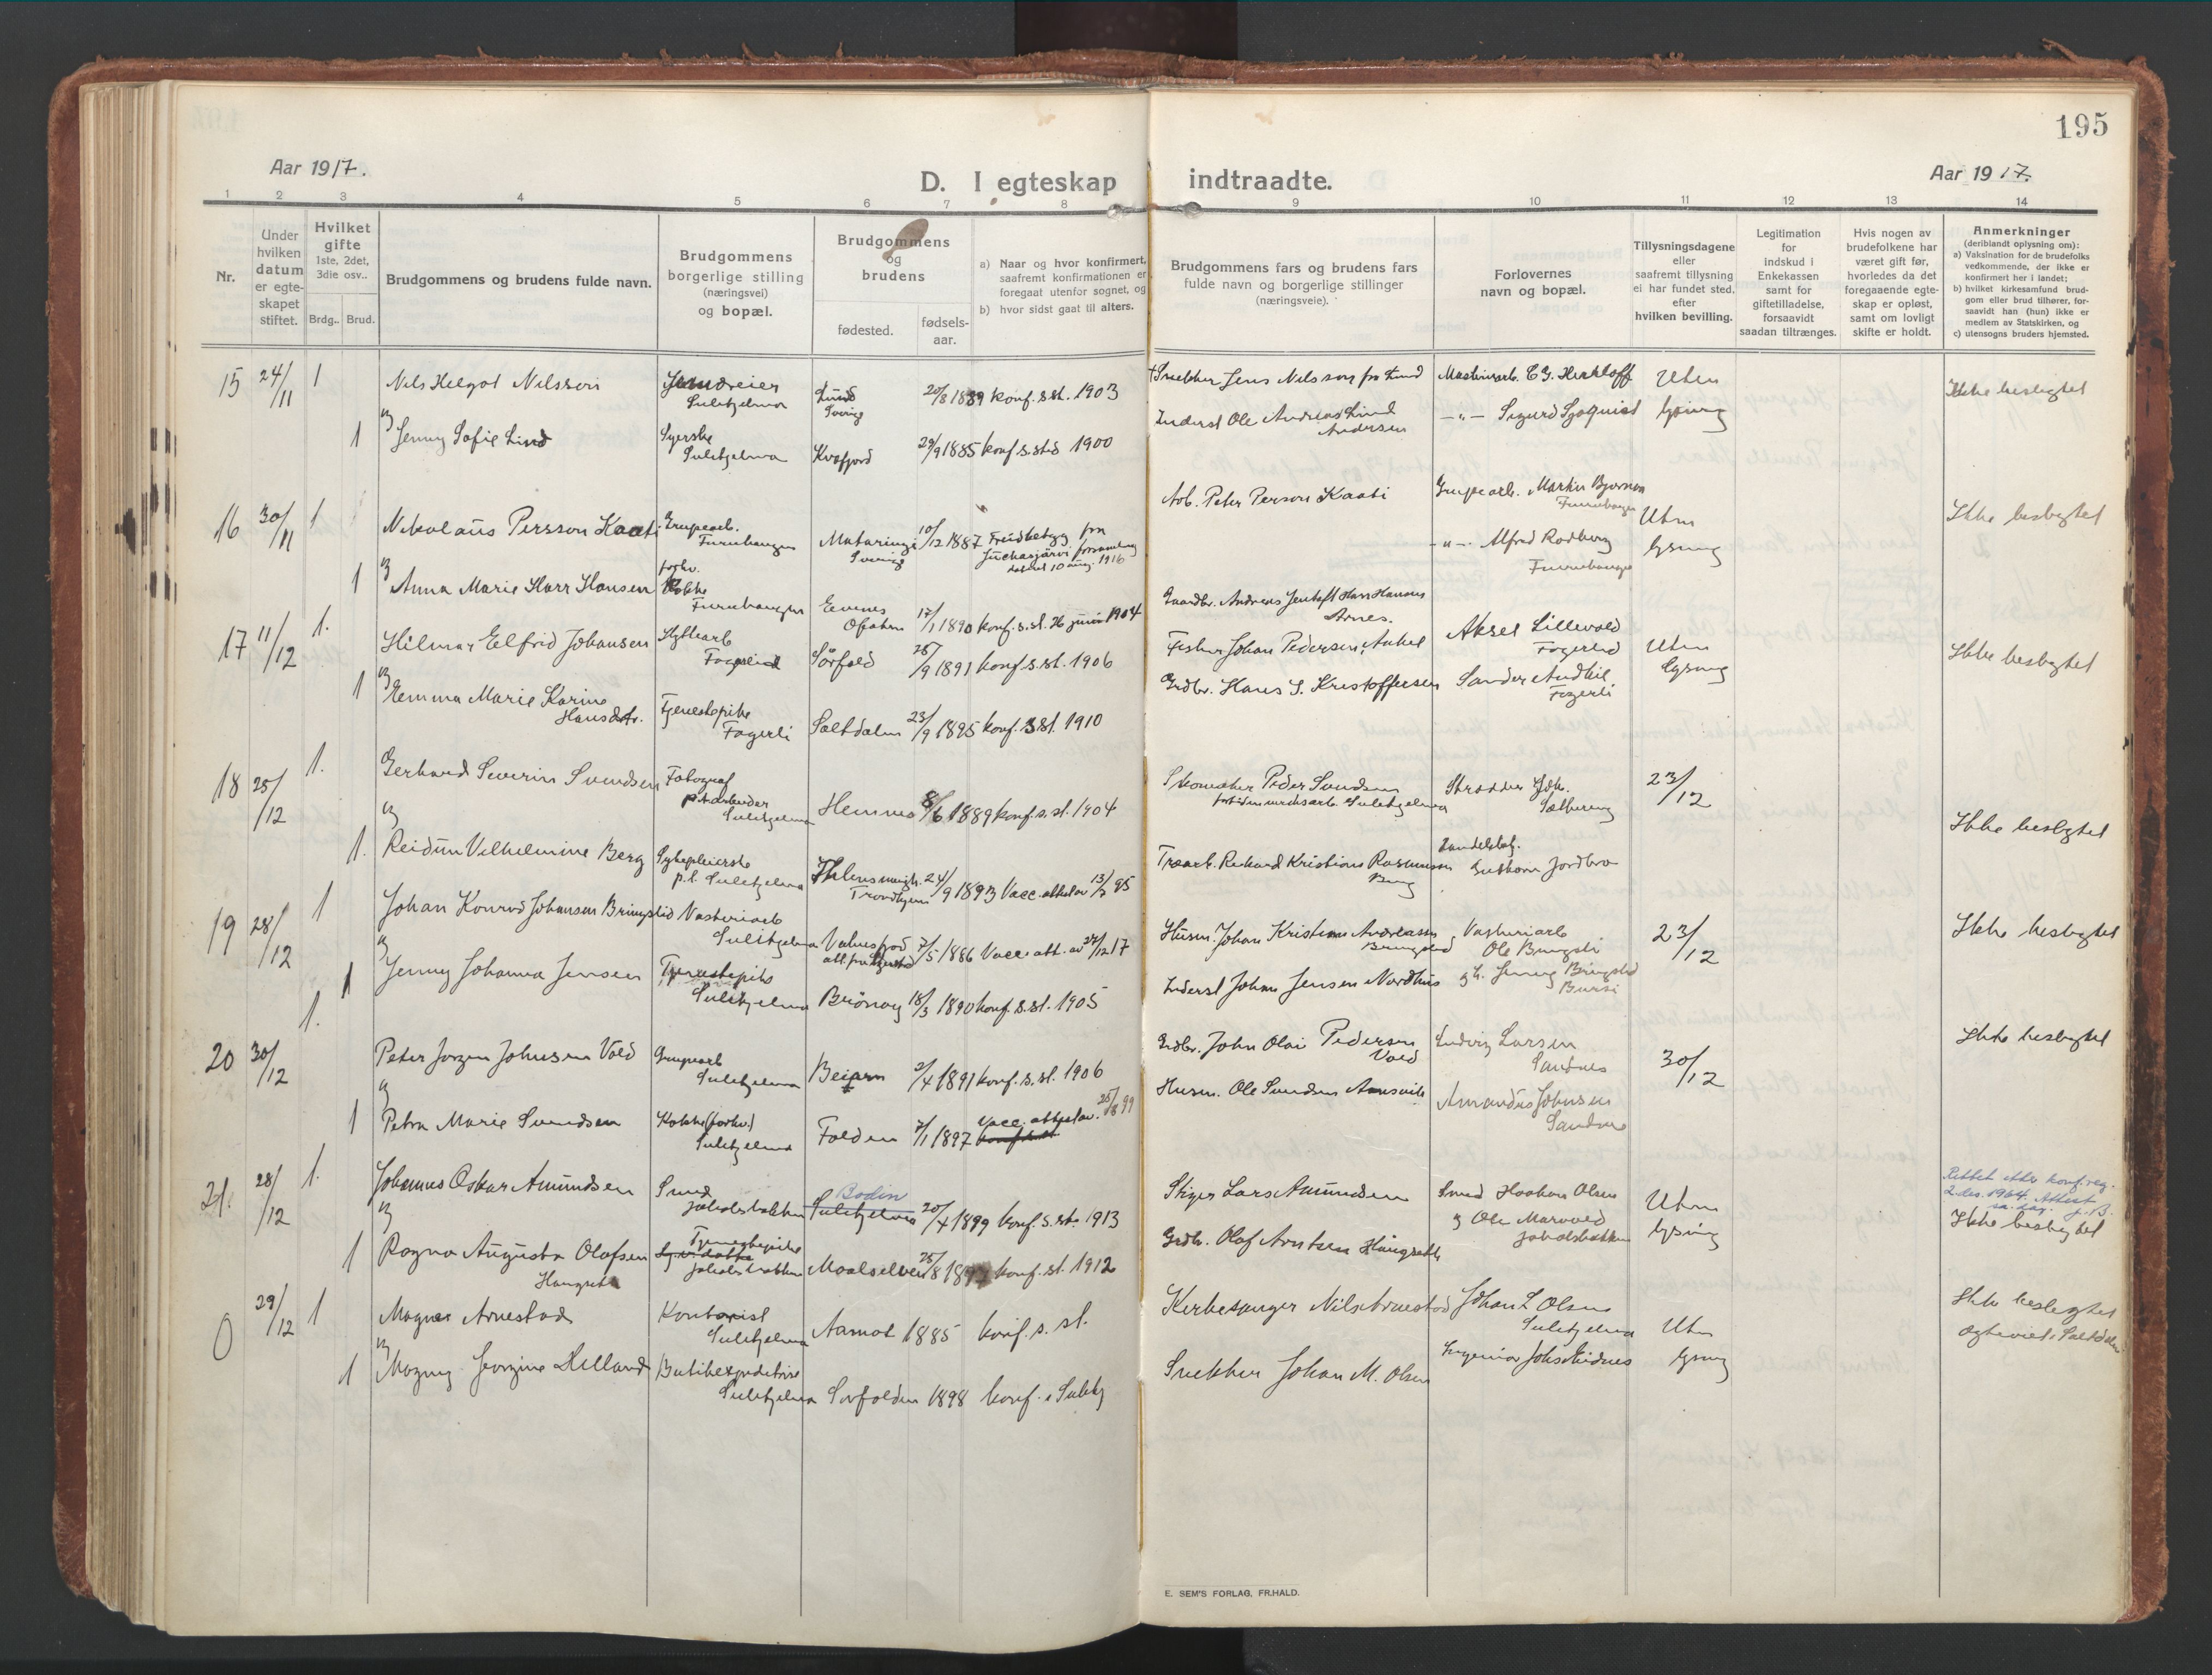 195
Aar 1917.
D. I egteskap indtraadte.
Aar 1917.
1 2 3 4 5 6 7 8 9 10 11 12 13 14
Nr.
Under hvilken datum er egte-skapet stiftet.
Hvilket gifte 1ste, 2det, 3die osv..
Brdg.. Brud.
Brudgommens og brudens fulde navn.
Brudgommens borgerlige stilling (næringsvei) og bopæl.
Brudgommens og brudens
fødested.
fødsels-aar.
a) Naar og hvor konfirmert, saafremt konfirmationen er foregaat utenfor sognet, og
b) hvor sidst gaat til alters.
Brudgommens fars og brudens fars fulde navn og borgerlige stillinger (næringsveie).
Forlovernes navn og bopæl.
Tillysningsdagene eller saafremt tillysning ei har fundet sted, efter hvilken bevilling.
Legitimation for indskud i Enkekassen samt for giftetilladelse, forsaavidt saadan tiltrænges.
Hvis nogen av brudefolkene har været gift før, hvorledes da det foregaaende egte-skap er opløst, samt om lovligt skifte er holdt.
Anmerkninger (deriblandt oplysning om):
a) Vaksination for de brudefolks vedkommende, der ikke er konfirmert her i landet;
b) hvilket kirkesamfund brud-gom eller brud tilhører, for-saavidt han (hun) ikke er medlem av Statskirken, og
c) utensogns bruders hjemsted.
15 24/11 1 Nils Helgot Nilsson
Sulitjelma Lund Sverige 20/8 1889 konf. s. st. 1903
Snekker Jens Nilsson fra Lund
Uten lysning
Ikke beslegtet
og
1 Jenny Sofie Lind Syerske Sulitjelma Kvæfjord 29/9 1885 konf. s. sted 1900
Inderst Ole Andreas Lind Andersen
—"— Sigurd Sjøquist
16 30/11 1 Nikolaus Persson Kaati Grubearb. Furuhaugen
Sverige 10/12 1887 fra Juckasjärvi forsamling 10 aug. 1916
Arb. Peter Person Kaati
Grubearb. Martin Bjørnson Furuhaugen
Uten lysning
Ikke beslegtet
og
1 Anna Marie Harr Hansen forhv. Kokke Furuhaugen Evenes Ofoten 17/1 1890 konf. s. st. 26 juni 1904
Gaardbr. Andreas Harr Hansen Arnes.
—"— Alfred Rodberg Furuhaugen
17 11/12 1. Hilmar Eelfrid Johansen Hyttearb. Fagerli Sørfold 25/9 1891 konf. s. st. 1906
Fisker Johan Pedersen,
Aksel Lillevold Fagerli
Uten lysning
Ikke beslegtet
og
1 Emma Marie Karine Hansdtr. Tjenestepike Fagerli Saltdalen 23/9 1895 konf. s. st. 1910
Grdbr. Hans S. Kristoffersen
Fagerli
18 25/12 1. Gerhard Severin Svendsen Fotograf Sulitjelma Hemnes 8/6 1889 konf. s. st. 1904
Skomaker Peder Svendsen
Sulitjelma
Skrædder Joh. Sætbering
23/12
Ikke beslegtet
og
1. Reidun Vilhelmine Berg Sykepleierske p.t. Sulitjelma Trondhjem 24/9 1893 Vacc. attest av 13/7 95
Træarb. Rikard Kristian Rasmussen Berg
Handelsbetj. Guttorm Jordbro
19 28/12 1 Johan Konrad Johansen Bringslid Vaskeriarb. Sulitjelma Valnesfjord 7/5 1886 Vacc. att. av 27/12 17
Husm. Johan Kristian Andreassen Bringslid
Vaskeriarb. Ole Bringsli
23/12
Ikke beslegtet
og
1 Jenny Johanna Jensen Tjenestepike Sulitjelma Brönöy 18/3 1890 konf. s. st. 1905
Inderst Johan Jensen Nordhus
Jenny Bringslid Bursi
20 30/12 1. Peter Jørgen Johnsen Vold Grubearb. Sulitjelma Beiarn 2/4 1891 konf. s. st. 1906
Grdbr. John Olai Pedersen Vold
Ludvig Larsen Sandnes
30/12
Ikke beslegtet
og
1 Petra Marie Svendsen Kokke (forhv.) Sulitjelma Folden 7/1 1897 Vacc. attest av. 25/8 99
Husm. Ole Svendsen Aansvik
Amandus Johnsen Sandnes
21. 28/12 1. Johannes Oskar Amundsen Smed Jakobsbakken Sulitjelma Bodin 20/4 1899 konf. s. st. 1913
Stiger Lars Amundsen
Smed Haakon Olsen
Uten lysning
Rettet etter konf.reg. 2 des. 1964. Attest
Ikke beslegtet
og
1 Ragna Augusta Olafsen Haugseth Tjenestepike Jakobsbakken Maalselven 25/8 konf. st. 1912
Grdbr. Olaf Arntsen Haugseth
og Ole Marvold Jakobsbakken
0 29/12 1 Magnus Arnestad Kontorist Sulitjelma Aamot 1885 konf. s. st.
Kirkesanger Nils Arnestad
Johan L Olsen Sulitjelma
Uten lysning
Ikke beslegtet
Egteviet i Saltdalen
og
1 Magny Jørgine Helland Butikexpeditrise Sulitjelma Sørfolden 1898 konf. i Sulitj.
Snekker Johan M. Olsen
Ingeniør Johs Eidnes
E. SEM'S FORLAG, FR.HALD.